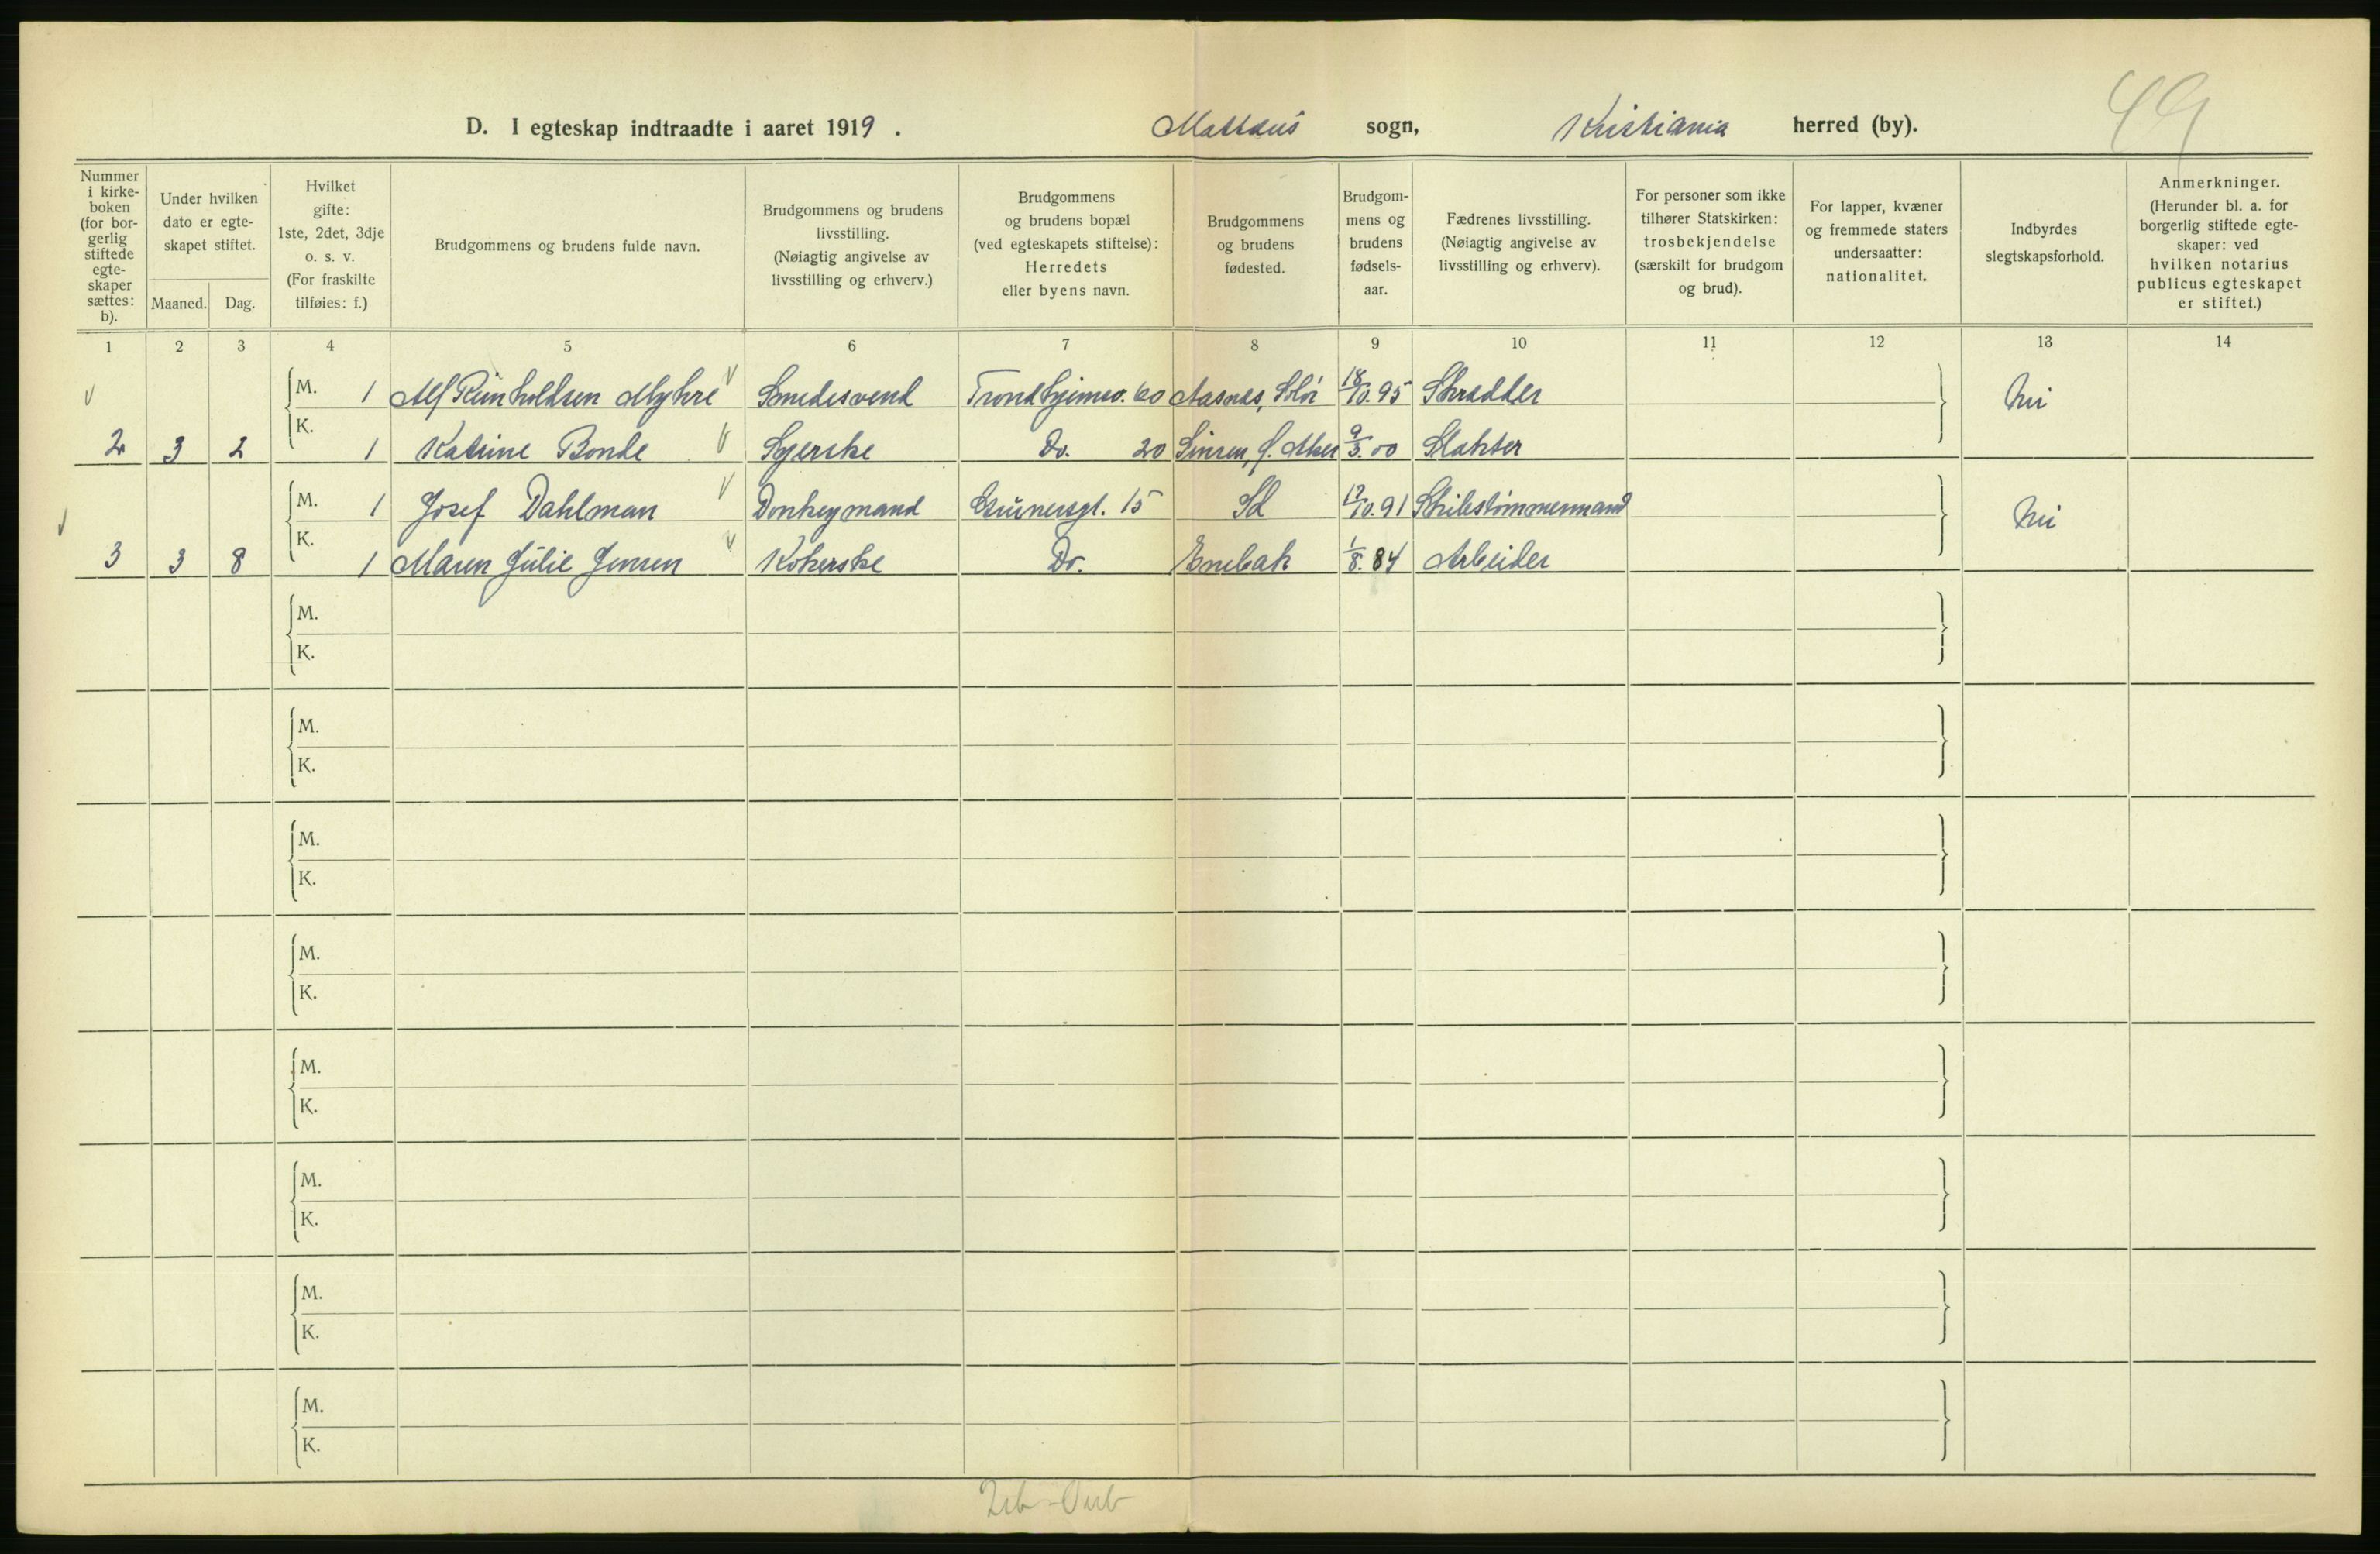 49
D. I egteskap indtraadte i aaret 1919. Mattæus sogn, Kristiania herred (by).
Nummer i kirke-boken (for bor-gerlig stiftede egte-skaper sættes: b).
Under hvilken dato er egte-skapet stiftet.
Maaned. Dag.
Hvilket gifte: 1ste, 2det, 3dje o. s. v. (For fraskilte tilføies: f.)
Brudgommens og brudens fulde navn.
Brudgommens og brudens livsstilling. (Nøiagtig angivelse av livsstilling og erhverv.)
Brudgommens og brudens bopæl (ved egteskapets stiftelse): Herredets eller byens navn.
Brudgommens og brudens fødested.
Brudgom-mens og brudens fødsels-aar.
Fædrenes livsstilling. (Nøiagtig angivelse av livsstilling og erhverv).
For personer som ikke tilhører Statskirken: trosbekjendelse (særskilt for brudgom og brud).
For lapper, kvæner og fremmede staters undersaatter: nationalitet.
Indbyrdes slegtskapsforhold.
Anmerkninger. (Herunder bl. a. for borgerlig stiftede egte-skaper: ved hvilken notarius publicus egteskapet er stiftet.)
1 2 3 4 5 6 7 8 9 10 11 12 13 14
M. 1 Alf Reinholdsen Myhre Smedesvend Trondhjemsv. 60 Aasnes, Solør 18/10.95 Skrædder Nei
2 3 2 K. 1 Katrine Bonde Syerske Do. 20 Sinsen, Ø. Aker 9/3.00 Slakter
M. 1 Josef Dahlman Donkeymand Grünersgt. 15 12/10.91 Skibstømmermand Nei
3 3 8 K. 1 Maren Julie Jensen Kokerske Do. Enebak 1/8.84 Arbeider
M.
K.
M.
K.
M.
K.
M.
K.
M.
K.
M.
K.
M.
K.
M.
K.